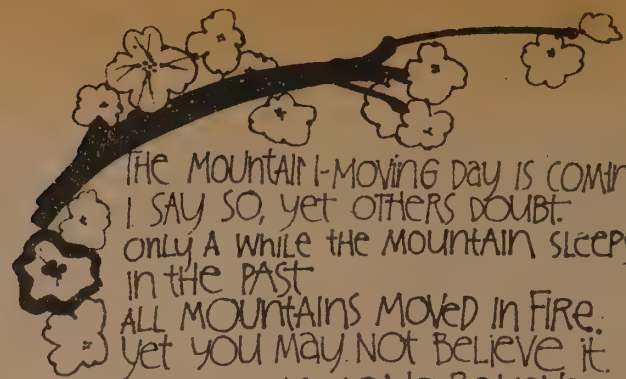 THE MOUNTAIN-MOVING DAY IS COMIN
I SAY SO, YET OTHERS DOUBT.
ONLY A WHILE THE MOUNTAIN SLEEPS
IN THE PAST
ALL MOUNTAINS MOVED IN FIRE.
YET YOU MAY NOT BELIEVE IT.